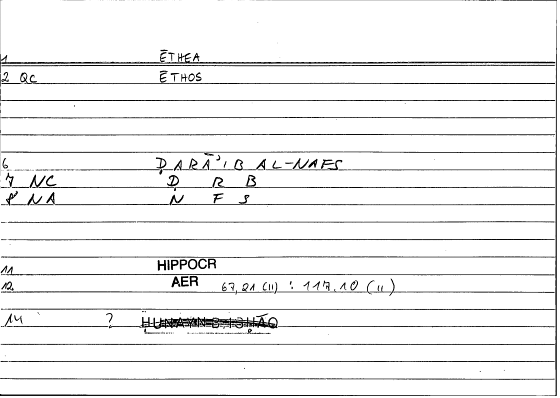 1 ĒTHEA
2 QC ĒTHOS
6 ḌARĀʾIB AL-NAFS
7 NC Ḍ R B
8 NA N F S
11 HIPPOCR
12 AER 67,21 (11) : 117.10 (11)
14 ? HUNAYN B. ISḤĀQ